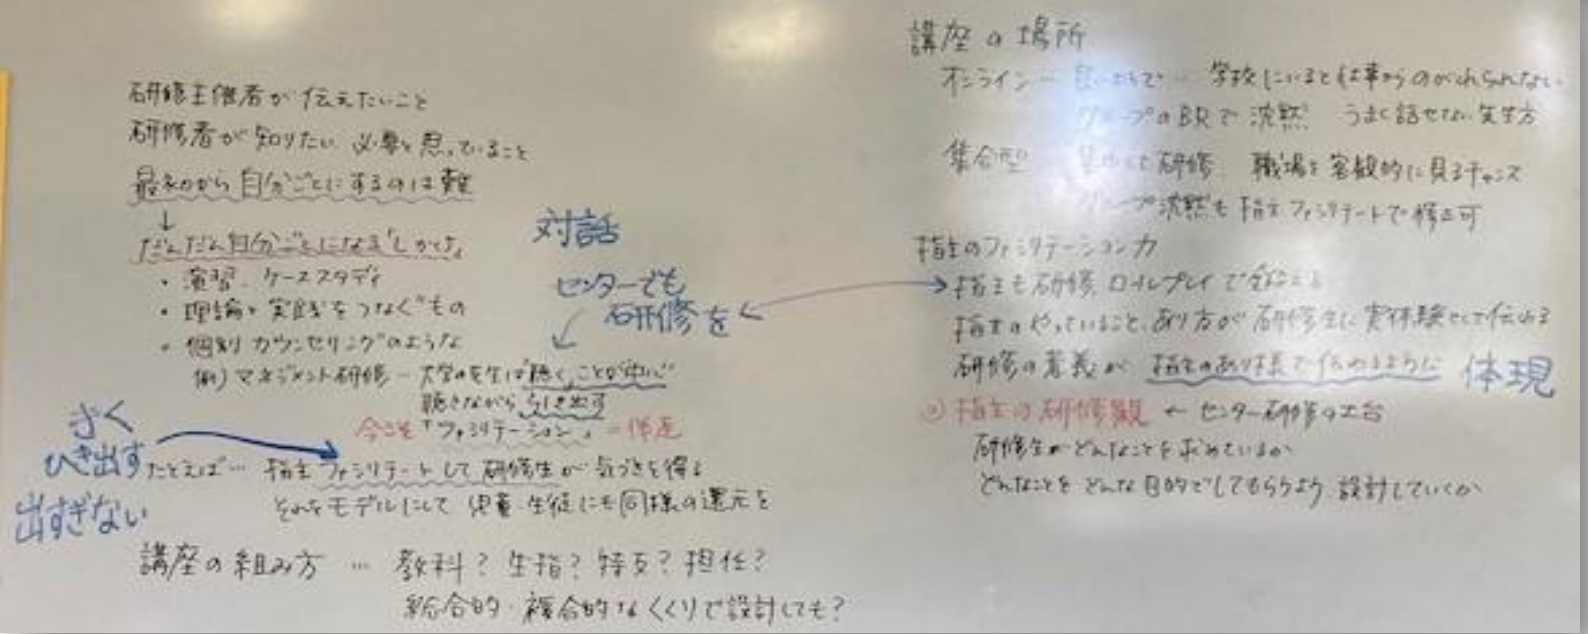 研修主催者が伝えたいこと
研修者が知りたい 必要と思っていること
最初から自分ごとにするのは難
↓
だんだん自分ごとになる「しかけ」
・演習、ケーススタディ
・理論と実践をつなぐもの
・個別カウンセリングのような
例)マネジメント研修 ― 大学の先生は「聴く」ことが中心
聴きながら ひき出す
今こそ「ファシリテーション」=伴走
たとえば… 指主ファシリテートして研修生が気づきを得る
それをモデルにして 児童・生徒にも同様の還元を
講座の組み方 … 教科?生指?特支?担任?
総合的・複合的なくくりで設計しても?
きく
ひき出す
出すぎない
対話
センターでも
研修を
講座の場所
オンライン… 学校にいると仕事からのがれられない
グループのBRで沈黙 うまく話せない先生方
集合型 研修 職場を客観的に見るチャンス
グループ沈黙も指主ファシリテートで修正可
指主のファシリテーション力
指主も研修、ロールプレイで
指主のやっていること、あり方が研修生に実体験として伝わる
研修の意義が 指主のあり様で伝わるように 体現
◎指主の研修観 ← センター研修の土台
研修生がどんなことを求めているか
どんなことをどんな目的でしてもらうよう 設計していくか